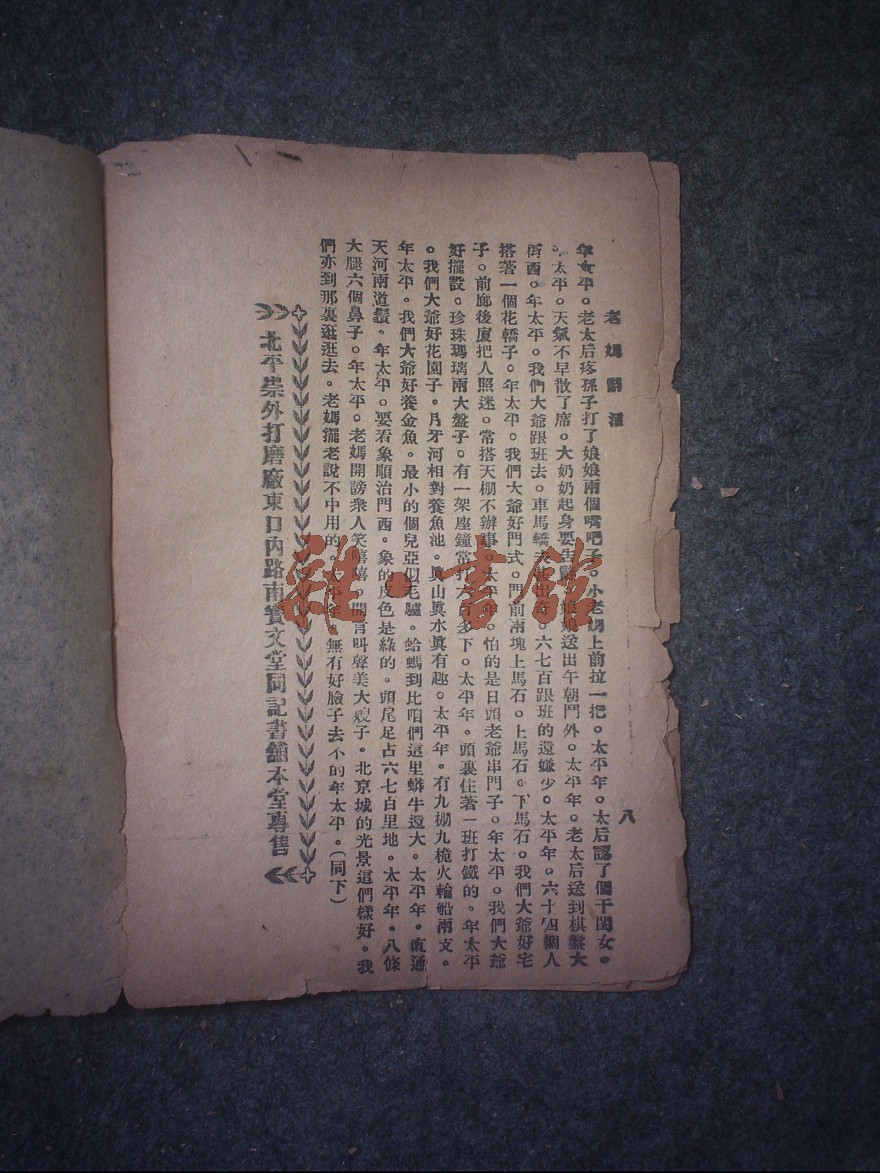 老媽開嗙
八
年太平。老太后疼孫子打了娘娘兩個嘴吧子。小老媽上前拉一把。太平年。太后認了個干閨女。
太平。天氣不早散了席。大奶奶起身要告辭。娘娘送出午朝門外。太平年。老太后送到棋盤大
街西。年太平。我們大爺跟班去。車馬轎 六七百跟班的還嫌少。太平年。六十四個人
搭著一個花轎子。年太平。我們大爺好門式。門前兩塊上馬石。上馬石。下馬石。我們大爺好宅
子。前廊後廈把人照迷。常搭天棚不辦事。太平年。怕的是日頭老爺串門子。年太平。我們大爺
好擺設。珍珠瑪璃兩大盤子。有一架座鐘當打六百多下。太平年。頭裏住著一班打鐵的。年太平
。我們大爺好花園子。月牙河相對養魚池。眞山眞水眞有趣。太平年。有九棚九桅火輪船兩支。
年太平。我們大爺好養金魚。最小的個兒亞似毛驢。蛤螞到比咱們這里蟒牛還大。太平年。直通
天河兩道鬚。年太平。要看象順治門西。象的皮色是綠的。頭尾足占六七百里地。太平年。八條
大腿六個鼻子。年太平。老媽開謗衆人笑嘻嘻。開言叫聲美大嫂子。北京城的光景這們樣好。我
們亦到那裏逛逛去。老媽擺老說不中用的。太平年。無有好臉子去不的年太平。（同下）
北平崇外打磨廠東口內路南寳文堂同記書舖本堂專售
雜·書館